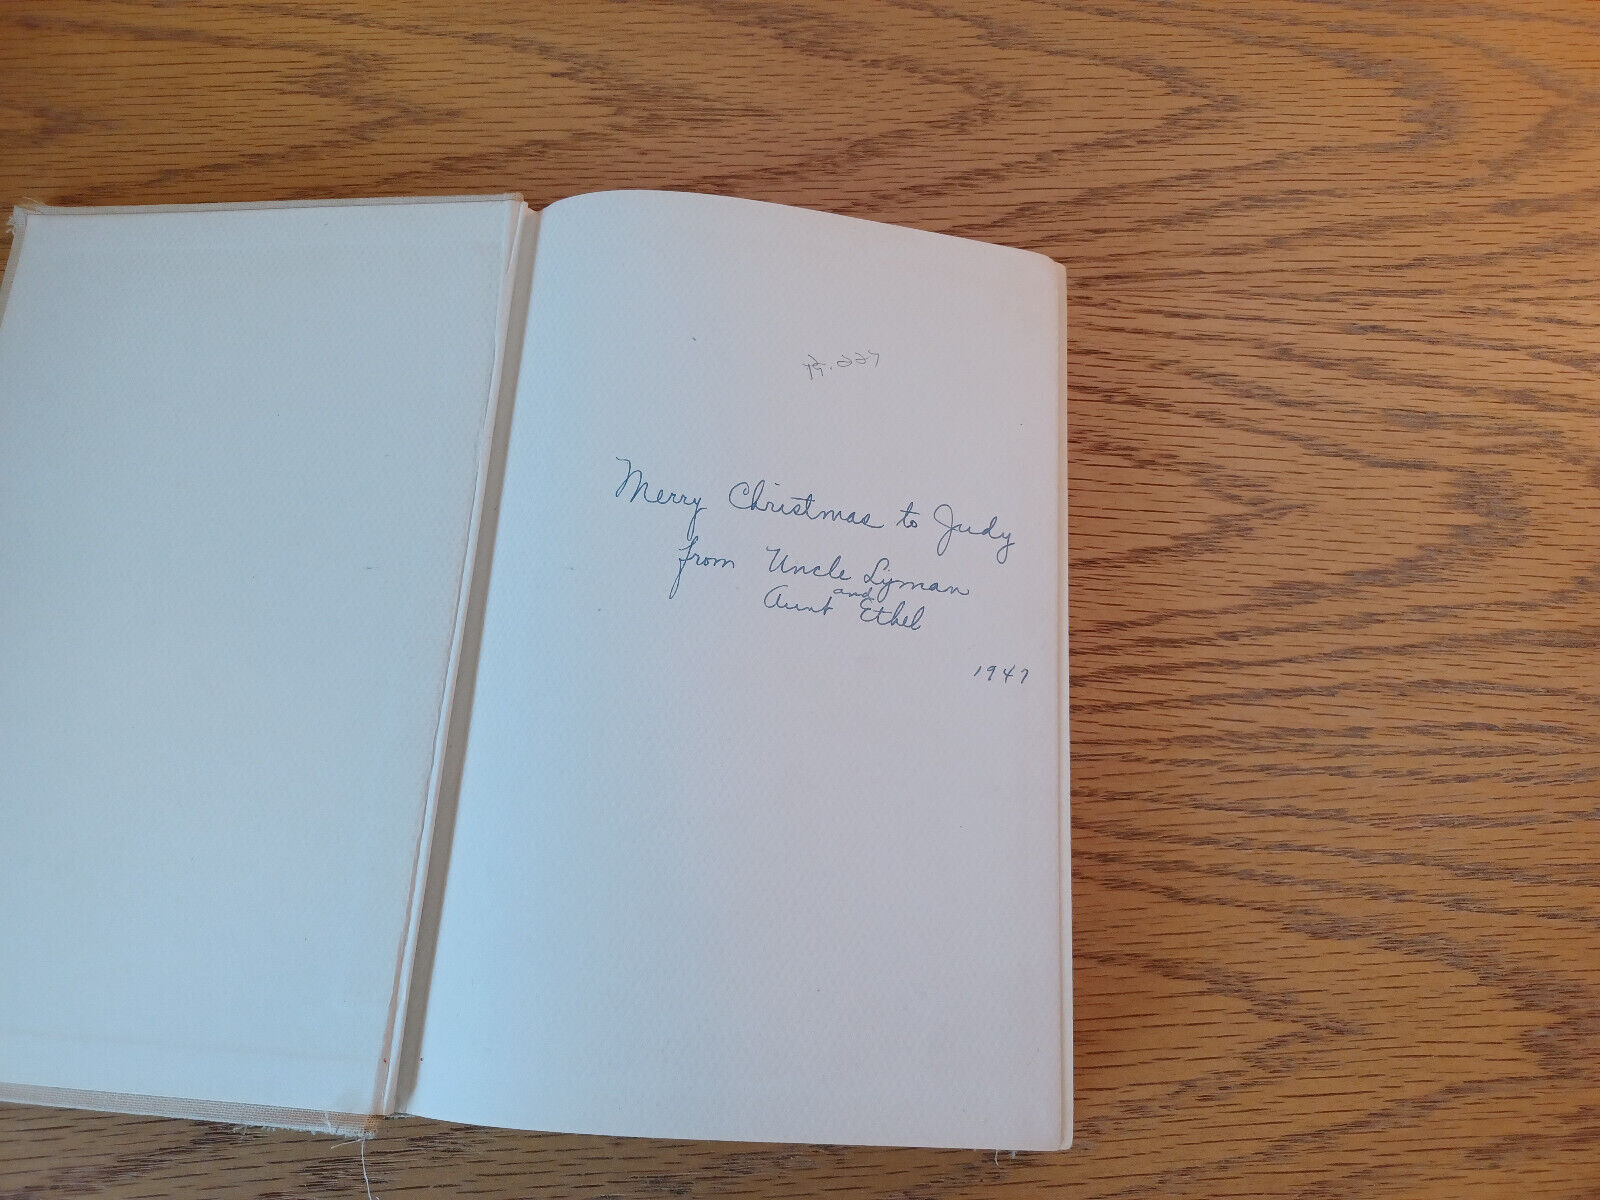 Merry Christmas to Judy
from Uncle Lyman
and
Aunt Ethel
1947